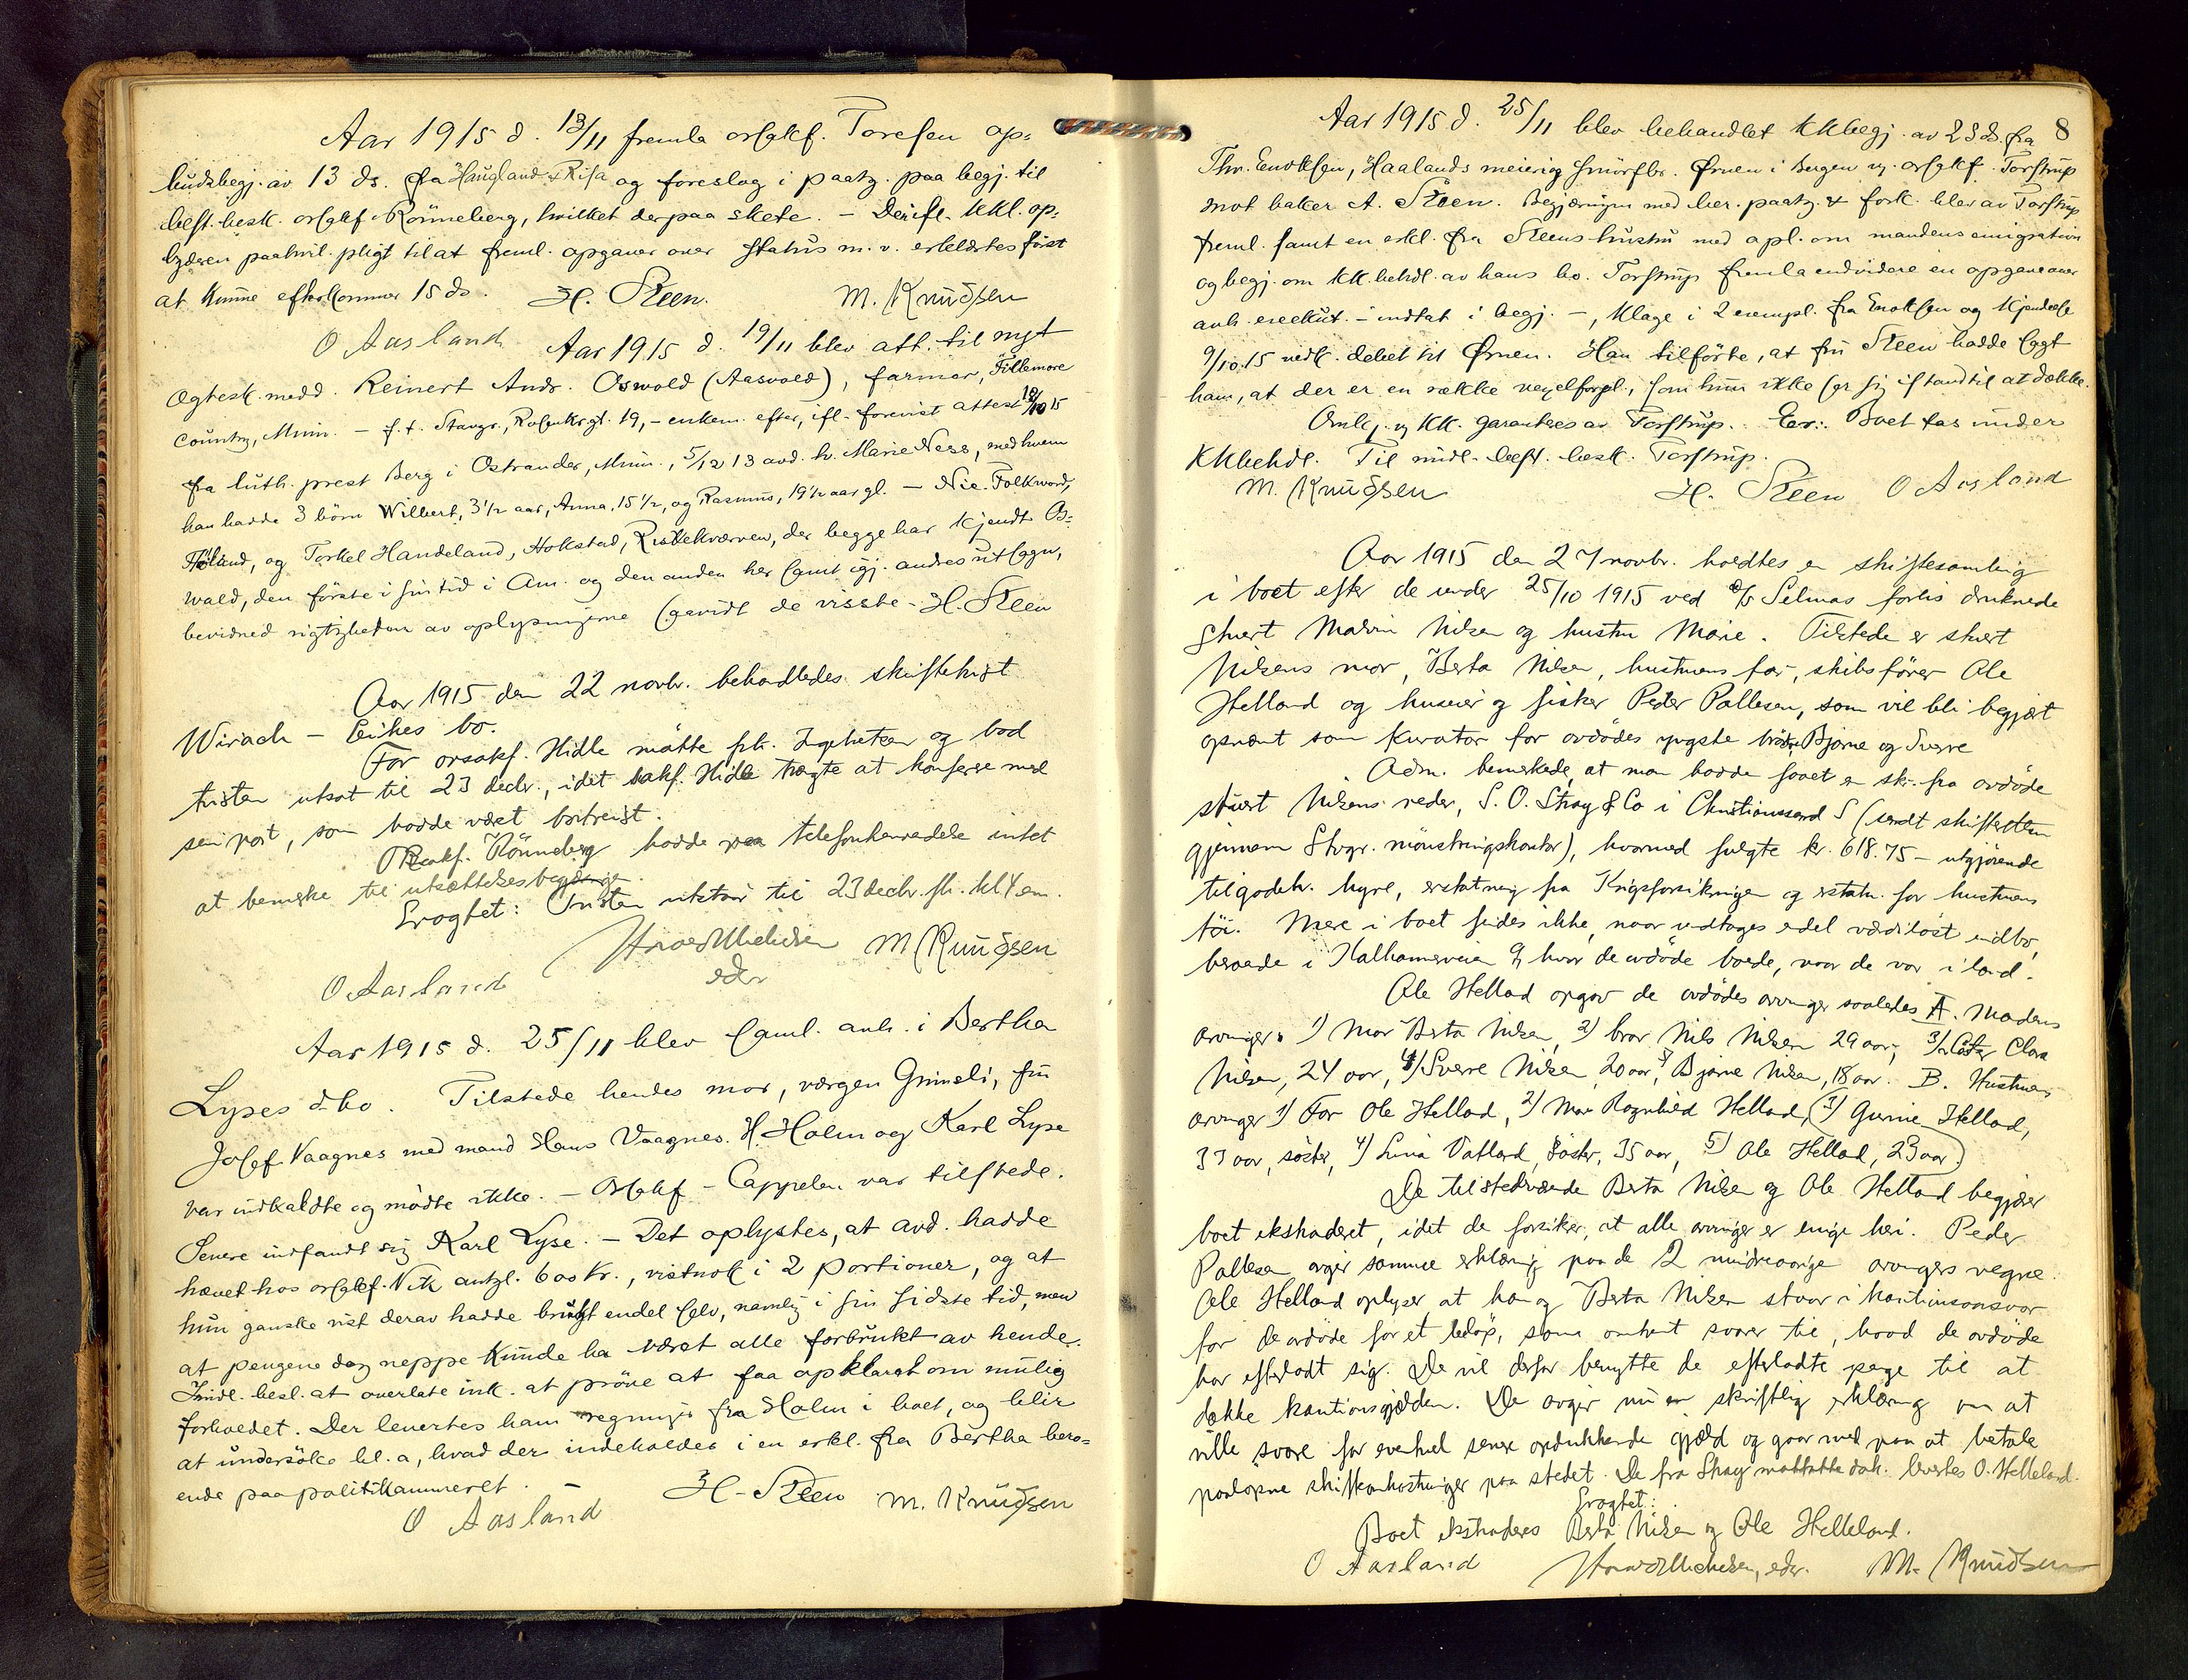 Aar 1915 d. 13/11 fremla orsakf. Toresen op-
budsbegj. av 13 ds. fra Haugland & Risa og foreslog i paatg. paa begj. til
best. besk. orsakf. Rönneberg, hvilket derpaa skete. - Derift. kkl. op-
byderen paahvil. pligt til at freml. opgaver over status m. v. erklærtes först
at kunne efterkommes 15 ds. H. Steen. M. Knudsen
O Aasland Aar 1915 d. 19/11 blev att. til nyt
egtesk. medd. Reinert Andr. Oswald (Aasvold), farmer, Fillemore
country, Minn. - f. t. Stavgr., Rosenkrgt. 19, - enkem. efter, ifl. forevist attest 18/10 15
fra luth. prest Berg i Ostrander, Minn., 5/12 13 avd. h. Marie Ness, med hvem
han hadde 3 börn Wilbert, 3 1/2 aar, Anna, 15 1/2, og Rasmus, 19 1/2 aar gl. - Nic. Folkvord,
Höland, og Torkel Handeland, Hokstad, Ristekværnen, der begge har kjendt Os-
wald, den förste i sin tid i Am. og den anden her samt igj. andres utsagn,
bevidned rigtigheden av oplysningerne saavidt de visste - H. Steen
Aar 1915 den 22 novbr. behandledes skiftekist
Wirach - Eikes bo.
For orsakf. Hidle mötte frk. Ingebretsen og bad
fristen utsat til 23 decbr., idet sakf. Hidle trægte at konferere med
sin part, som hadde været bortreist.
Orsakf. Rönneberg hadde paa telefonhenvendelse intet
at bemerke til utsættelsesbegjæringen.
Eragtet: Fristen utstaar til 23 decbr. fk. kl 4 em.
Harald Michelsen M Knudsen
O Aasland edsv
Aar 1915 d. 25/11 blev saml. anh. i Bertha
Lyses dbo. Tilstede hendes mor, værgen Grimsli, fru
Josef. Vaagnes med mand Hans Vaagnes. H. Holm og Karl Lyse
var indkaldte og mödte ikke. - Orsakf - Cappelen var tilstede.
Senere indfandt sig Karl Lyse. - Det oplystes, at avd. hadde
hævet hos orsakf. Vik antgl. 600 kr., vistnok i 2 portioner, og at
hun ganske vist derav hadde brugt endel selv, namlig i sin sidste tid, men
at pengene dog neppe kunde ha været alle forbrukt av hende.
Imidl. besl. at overlate ink. at pröve at faa opklaret om mulig
forholdet. Der levertes ham regninger fra Holm i boet, og blir
at undersöke bl. a, hvad der indeholdes i en erkl. fra Bertha bero-
ende paa politikammeret. - H. Steen M. Knudsen
O Aasland
8
Aar 1915 d. 25/11 blev behandlet kkbegj. av 23 ds. fra
Thv. Enoksen, Haalands meierig Smörfbr. Örnen i Bergen vg. orsakf. Torstrup
mot baker A. Steen. Begjæringen med her. paatg. & fork. blev av Torstrup
freml. samt en erkl. fra Steens hustru med opl. om mandens emigration
og begj. om kk. behdl. av hans bo. Torstrup fremla endvidere en opgave over
anh. execut. - indtat i begj. -, klage i 2 exempl. fra Enoksen og kjendelse
9/10.15 vedk. debet til Örnen. Han tilförte, at fru Steen hadde sagt
ham, at der er en række vexelforpl., som hun ikke ser sig istand til at dække.
Omkj. vg KK. garantees av Torstrup. Er.: Boet tas under
KKbehdl. Til midl. best. besk. Torstrup.
M. Knudsen H. Steen O Aasland
Aar 1915 den 27 novbr. holdtes en skiftesamling
i boet efter de under 25/10 1915 ved d/s Selmas forlis druknede
stuert Malvin Nilsen og hustru Marie. Tilstede er stuert
Nilsens mor, Berta Nilsen, hustruens far, skibsförer Ole
Helland og huseier og fisker Peder Pallesen, som vil bli begjært
opnævnt som kurator for avdödes yngste brödre Bjarne og Sverre
Adm. bemerkede, at man hadde faaet en skr. fra avdöde
stuert Nilsens reder, S. O. Stray & Co i Christianssand S (sendt skifteretten
gjennem Stvgr. mönstringskontor), hvormed fulgte kr. 618.75 - utgjörende
tilgodeh. hyre, erstatning fra Krigsforsikringen og erstatn. for hustruens
töi. Mere i boet findes ikke, naar undtages endel værdilöst indbo,
beroende i Kalhammerveien 9, hvor de avdöde boede, naar de var i land.
Ole Helland opgav de avdödes arvinger saaledes A. Mandens
arvinger: 1) Mor Berta Nilsen, 2) bror Nils Nilsen 29 aar, 3) söster Clara
Nilsen, 24 aar, 4) Sverre Nilsen 20 aar, 5) Bjarne Nilsen, 18 aar. B. Hustruens
arvinger 1) Far Ole Helland, 2) Mor Ragnhild Helland, (3) Gurine Helland,
37 aar, söster, 4) Lina Vatland, söster, 35 aar, 5) Ole Helland, 23 aar)
De tilstedeværende Berta Nilsen og Ole Helland begjær
boet ekstraderet, idet de forsikrer, at alle arvinger er enige heri. Peder
Pallesen avgir samme erklæring paa de 2 mindreaarige arvingers vegne.
Ole Helland oplyser at han og Berta Nilsen staar i kautionsansvar
for de avdöde for et belöp, som omtrent svarer til, hvad de avdöde
har efterladt sig. De vil derfor benytte de efterladte penge til at
dække kautionsgjælden. De avgir nu en skriftlig erklæring om at
ville svare for eventuel senere opdukkende gjæld og gaar med paa at betale
paalöpne skifteomkostninger paa stedet. De fra Stray mottatte dok. levertes O. Helleland.
Eragtet:
Boet ekstraderes Berta Nilsen og Ole Helleland.
O Aasland Harald Michelsen, edsv. M. Knudsen